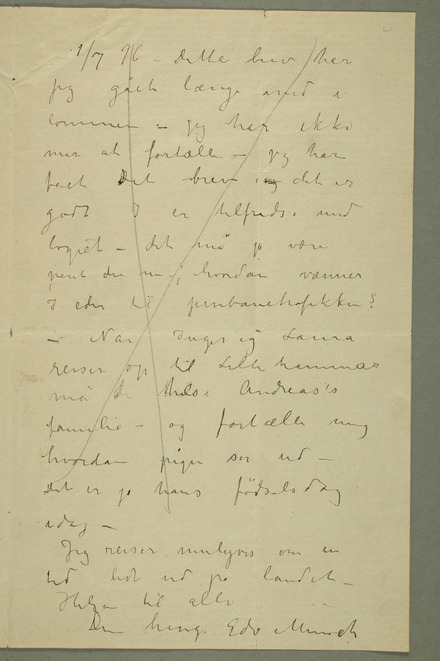 1/7 96 – Dette brev har
jeg gået længe med i
lommen – Jeg har ikke
mer at fortælle – jeg har
fået Dit brev og det er
godt I er tilfreds med
logiet – det må jo være
pent der nu – hvordan vænner
I eder til jernbanetrafikken?
– Når Inger og Laura
reiser op til Lillehammer
må de hilse Andreas's
familie – og fortælle mig
hvordan pigen ser ud –
Det er jo hans fødselsdag
idag –
Jeg reiser muligvis om en
tid lidt ud på landet –
Hilsen til alle
Din heng. Edv Munch